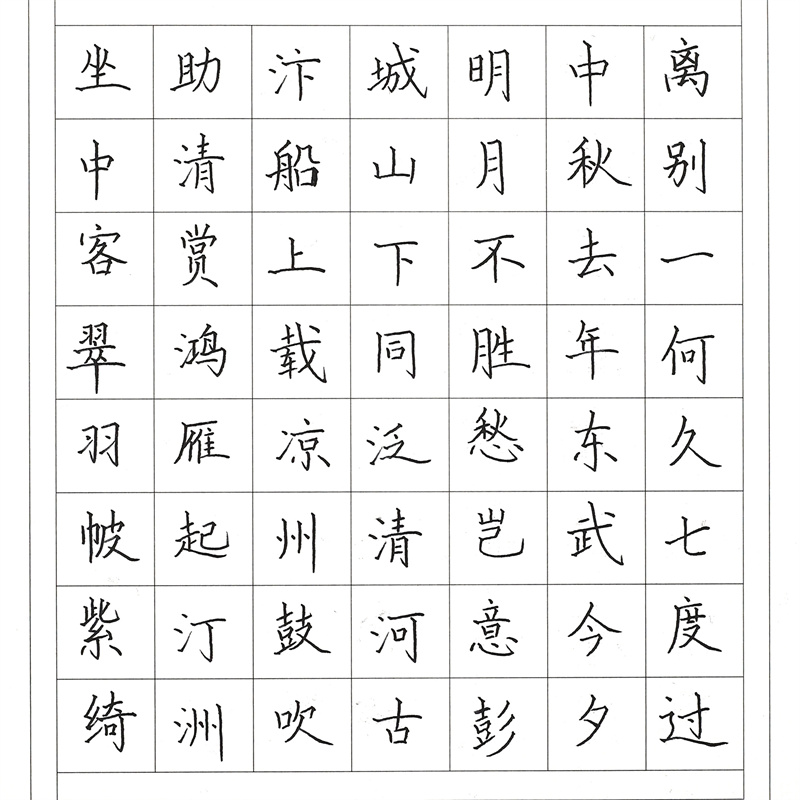 离别一何久七度过
中秋去年东武今夕
明月不胜愁岂意彭
城山下同泛清河古
汴船上载凉州鼓吹
助清赏鸿雁起汀洲
坐中客翠羽帔紫绮